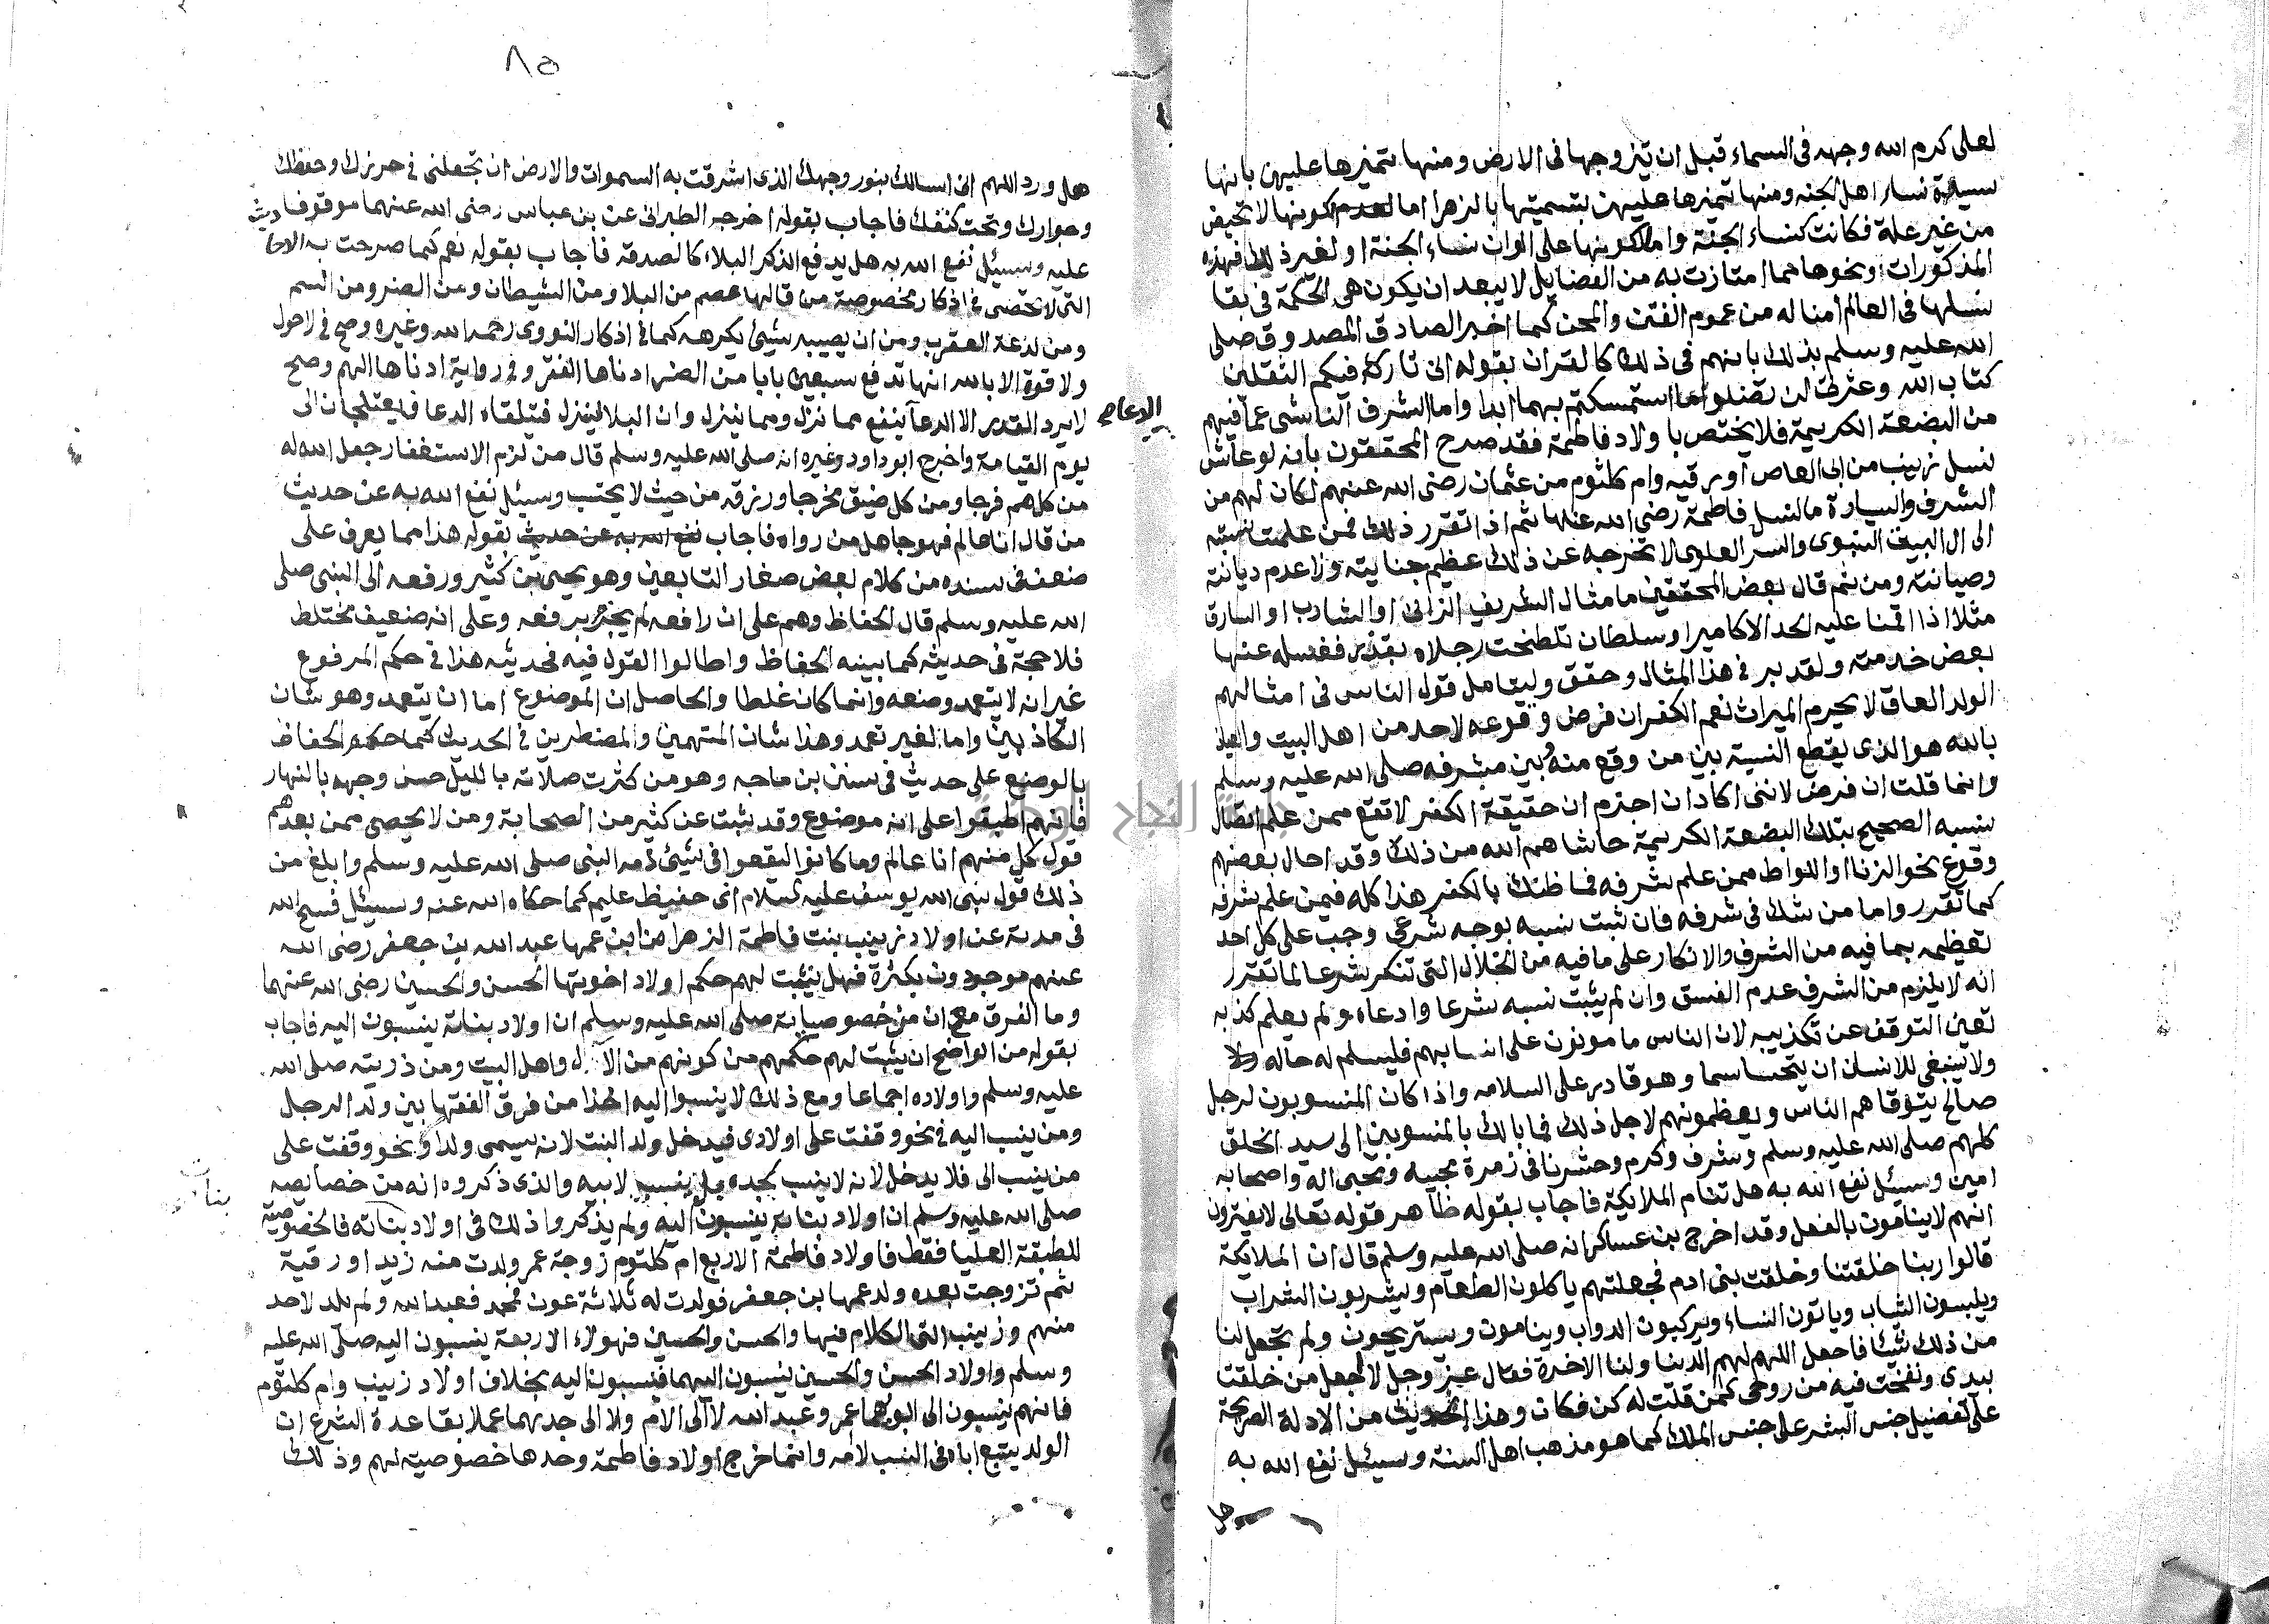 لعلى كرم الله وجهه فى السماء قبل ان تيزوجها فى الارض ومنها تميزها عليهن بانها
سيدة نساء اهل الجنه ومنها تميزها عليهن بتسميتها بالزهرا اما لعدم كونها لا تحيض
من غير علة فكانت كنساء الجنة واما لكونها على الوان نساء الجنة او لغير ذلك فهذه
المذكورات ونحوها مما امتازت به من الفضايل لا يبعد ان يكون هى الحكمة فى بقا
نسلها فى العالم امنا له من عموم الفتن والمحن كما اخبر الصادق المصدوق صلى
الله عليه وسلم بذلك بانهم فى ذلك كالقران بقوله انى تارك فيكم الثقلين
كتاب الله وعترتى لن تضلوا ما استمسكتم بهما ابدا واما الشرف الناشى عما فيهم
من البضعة الكريمة فلا يختص باولاد فاطمة فقد صرح المحققون بانه لو عاش
نسل زينب من ابى العاص او رقيه وام كلثوم من عثمان رضى الله عنهم لكان لهم من
الشرف والسيادة ما لنسل فاطمة رضى الله عنها ثم اذا تقرر ذلك فمن علمت نسبته
الى ال البيت النبوى والسر العلوى لا تخرجه عن ذلك عظيم جنايته ولا عدم ديانته
وصيانته ومن ثم قال بعض المحققين ما مثال الشريف الزانى او الشارب او السارق
مثلا اذا اقمنا عليه الحد الا كامير او سلطان تلطخت رجلاه بقذر فغسله عنها
بعض خدمته ولقد بر فى هذا المثال وحقق وليتامل قول الناس فى امثالهم
الولد العاق لا يحرم الميراث نعم الكفر ان فرض وقوعه لاحد من اهل البيت والعياذ
بالله هو الذى يقطع النسبة بين من وقع منه وبين مشرفه صلى الله عليه وسلم
وانما قلت ان فرض لاننى اكاد ان اجزم ان حقيقة الكفر لا تقع ممن علم اتصال
نسبه الصحيح بتلك البضعة الكريمة حاشاهم الله من ذلك وقد احال بعضهم
وقوع نحو الزنا او اللواط ممن علم شرفه فما ظنك بالكفر هذا كله فيمن علم شرفه
كما تقرر واما من شك فى شرفه فان ثبت نسبه بوجه شرعى وجب على كل احد
تعظيمه بما فيه من الشرف والانكار على ما فيه من الخلال التى تنكر شرعا لما تقرر
انه لا يلزم من الشرف عدم الفسق وان لم يثبت نسبه شرعا وادعاه ولم يعلم كذبه
تعين التوقف عن تكذيبه لان الناس مامونون على انسابهم فليسلم له حاله
ولا ينبغى للانسان ان يتحسا سما وهو قادر على السلامه واذا كان المنسوبون لرجل
صالح يتوقاهم الناس ويعظمونهم لاجل ذلك فما بالك بالمنسوبين الى سيد الخلق
كلهم صلى الله عليه وسلم وشرف وكرم وحشرنا فى زمرة محبيه ومحبى اله واصحابه
امين وسيئل نفع الله به هل تنام الملايكة فاجاب بقوله ظاهر قوله تعالى لا يفترون
انهم لا ينامون بالفعل وقد اخرج بن عساكر انه صلى الله عليه وسلم قال ان الملايكة
قالوا ربنا خلقتنا وخلقت بنى ادم فجعلتهم ياكلون الطعام ويشربون الشراب
ويلبسون الثياب وياتون النساء ويركبون الدواب وينامون ويستريحون ولم تجعل لنا
من ذلك شيئا فاجعل اللهم لهم الدنيا ولنا الاخرة فقال عز وجل لا اجعل من خلقت
بيدى ونفخت فيه من روحى كمن قلت له كن فكان وهذا الحديث من الادلة الصريحة
على تفضيل جنس البشر على جنس الملك كما هو مذهب اهل السنة وسيئل نفع الله به
هل
٨٥
هل ورد اللهم انى اسالك بنور وجهك الذى اشرقت به السموات والارض ان تجعلنى فى حرزك وحفظك
وجوارك وتحت كنفك فاجاب بقوله اخرجه الطبرانى عن بن عباس رضى الله عنهما موقوفا
عليه وسيئل نفع الله به هل يدفع الذكر البلاء كالصدقة فاجاب بقوله نعم كما صرحت به الاحاديث
التى لا تحصى فى اذكار مخصوصة من قالها عصم من البلا ومن الشيطان ومن الضر ومن السم
ومن لدغة العقرب ومن ان يصيبه شيئ يكرهه كما فى اذكار النووى رحمه الله وغيره وصح فى لا حول
ولا قوة الا بالله انها تدفع سبعين بابا من الضر ادناها الفقر وفى رواية ادناها الهم وصح
لا يرد القدر الا الدعا ينفع مما نزل ومما ينزل وان البلا لينزل فيتلقاه الدعا فيعتلجان الى
الدعا صح
يوم القيامة واخرج ابو داود وغيره انه صلى الله عليه وسلم قال من لزم الاستغفار جعل الله له
من كل هم فرجا ومن كل ضيق مخرجا ورزقه من حيث لا يحتسب وسيئل نفع الله به عن حديث
من قال انا عالم فهو جاهل من رواه فاجاب نفع الله به عن حديث بقوله هذا مما يعرف على
ضعف فى سنده من كلام بعض صغار التابعين وهو يحيى بن كثير ورفعه الى النبى صلى
الله عليه وسلم قال الحفاظ وهم على ان رافعه لم يجزم برفعه وعلى انه ضعيف مختلط
فلا حجة فى حديثه كما بينه الحفاظ واطالوا القول فيه فحديثه هذا فى حكم المرفوع
غير انه لا يتعمد وضعه وانما كان غلطا والحاصل ان الموضوع اما ان يتعمد وهو شان
الكاذبين واما لغير تعمد وهذا شان المتهمين والمضطربين فى الحديث كما حكم الحفاظ
بالوضع على حديث فى سنن بن ماجه وهو من كثرت صلاته بالليل حسن وجهه بالنهار
فانهم اطبقوا على انه موضوع وقد ثبت عن كثير من الصحابة ومن لا يحصى ممن بعدهم
قول كل منهم انا عالم وما كانوا ليقعوا فى شيئ ذمه النبى صلى الله عليه وسلم وابلغ من
ذلك قول نبى الله يوسف عليه السلام انى حفيظ عليم كما حكاه الله عنه وسيئل فسح الله
فى مدته عن اولاد زينب بنت فاطمة الزهرا من ابن عمها عبد الله بن جعفر رضى الله
عنهم موجودون بكثرة فهل يثبت لهم حكم اولاد اخويها الحسن والحسين رضى الله عنهما
وما الفرق مع ان من خصوصياته صلى الله عليه وسلم ان اولاد بناته ينسبون اليه فاجاب
بقوله من الواضح ان يثبت لهم حكمهم من كونهم من الال واهل البيت ومن ذريته صلى الله
عليه وسلم واولاده اجماعا ومع ذلك لا ينسبوا اليه اخذا من فرق الفقها بين ولد الرجل
ومن ينسب اليه فى نحو وقفت على اولادى فيدخل ولد البنت لانه يسمى ولدا ونحو وقفت على
من ينسب الى فلا يدخل لانه لا ينسب لجده بل ينسب لابيه والذى ذكروه انه من خصايصه
صلى الله عليه وسلم ان اولاد بناته ينسبون اليه ولم يذكروا ذلك فى اولاد بناته فالخصوصية
بنات
للطبقة العليا فقط فاولاد فاطمة الاربع ام كلثوم زوجة عمر ولدت منه زيد او رقية
ثم تزوجت بعده ولد عمها بن جعفر فولدت له ثلاثة عون فمحمد فعبد الله ولم تلد لاحد
منهم وزينب التى الكلام فيها والحسن والحسين فهولاء الاربعة ينسبون اليه صلى الله عليه
وسلم واولاد الحسن والحسين ينسبون اليهما فينسبون اليه بخلاف اولاد زينب وام كلثوم
فانهم ينسبون الى ابويهما عمر وعبد الله لا الى الام ولا الى جدهما عملا بقاعدة الشرع ان
الولد يتبع اباه فى النسب لامه وانما خرج اولاد فاطمة وحدها خصوصية لهم وذلك
جامعة النجاح الوطنية